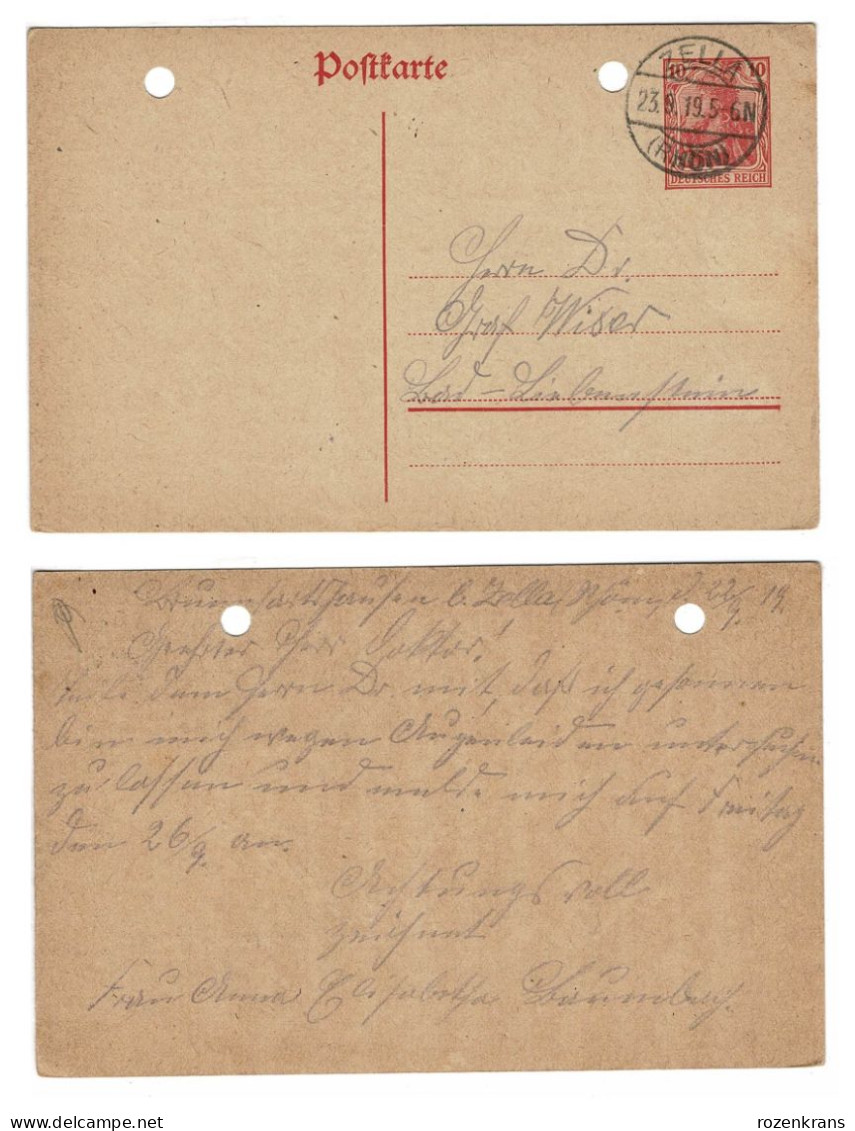 Postkarte
10 10
ZELLA
23.9.19.5-6N
(RHÖN)
DEUTSCHES REICH
Herrn Dr.
Graf Wiser
Bad-Liebenstein
Brunnhartshausen b. Zella, Rhön, d. 22/9. 19.
Geehrter Herr Doktor!
Teile dem Herrn Dr. mit, daß ich gesonnen
bin mich wegen Augenleiden untersuchen
zu lassen und melde mich auf Freitag
den 26/9. an.
Achtungsvoll
zeichnet
Frau Anna Elisabetha Baumbach.
www.delcampe.net
rozenkrans